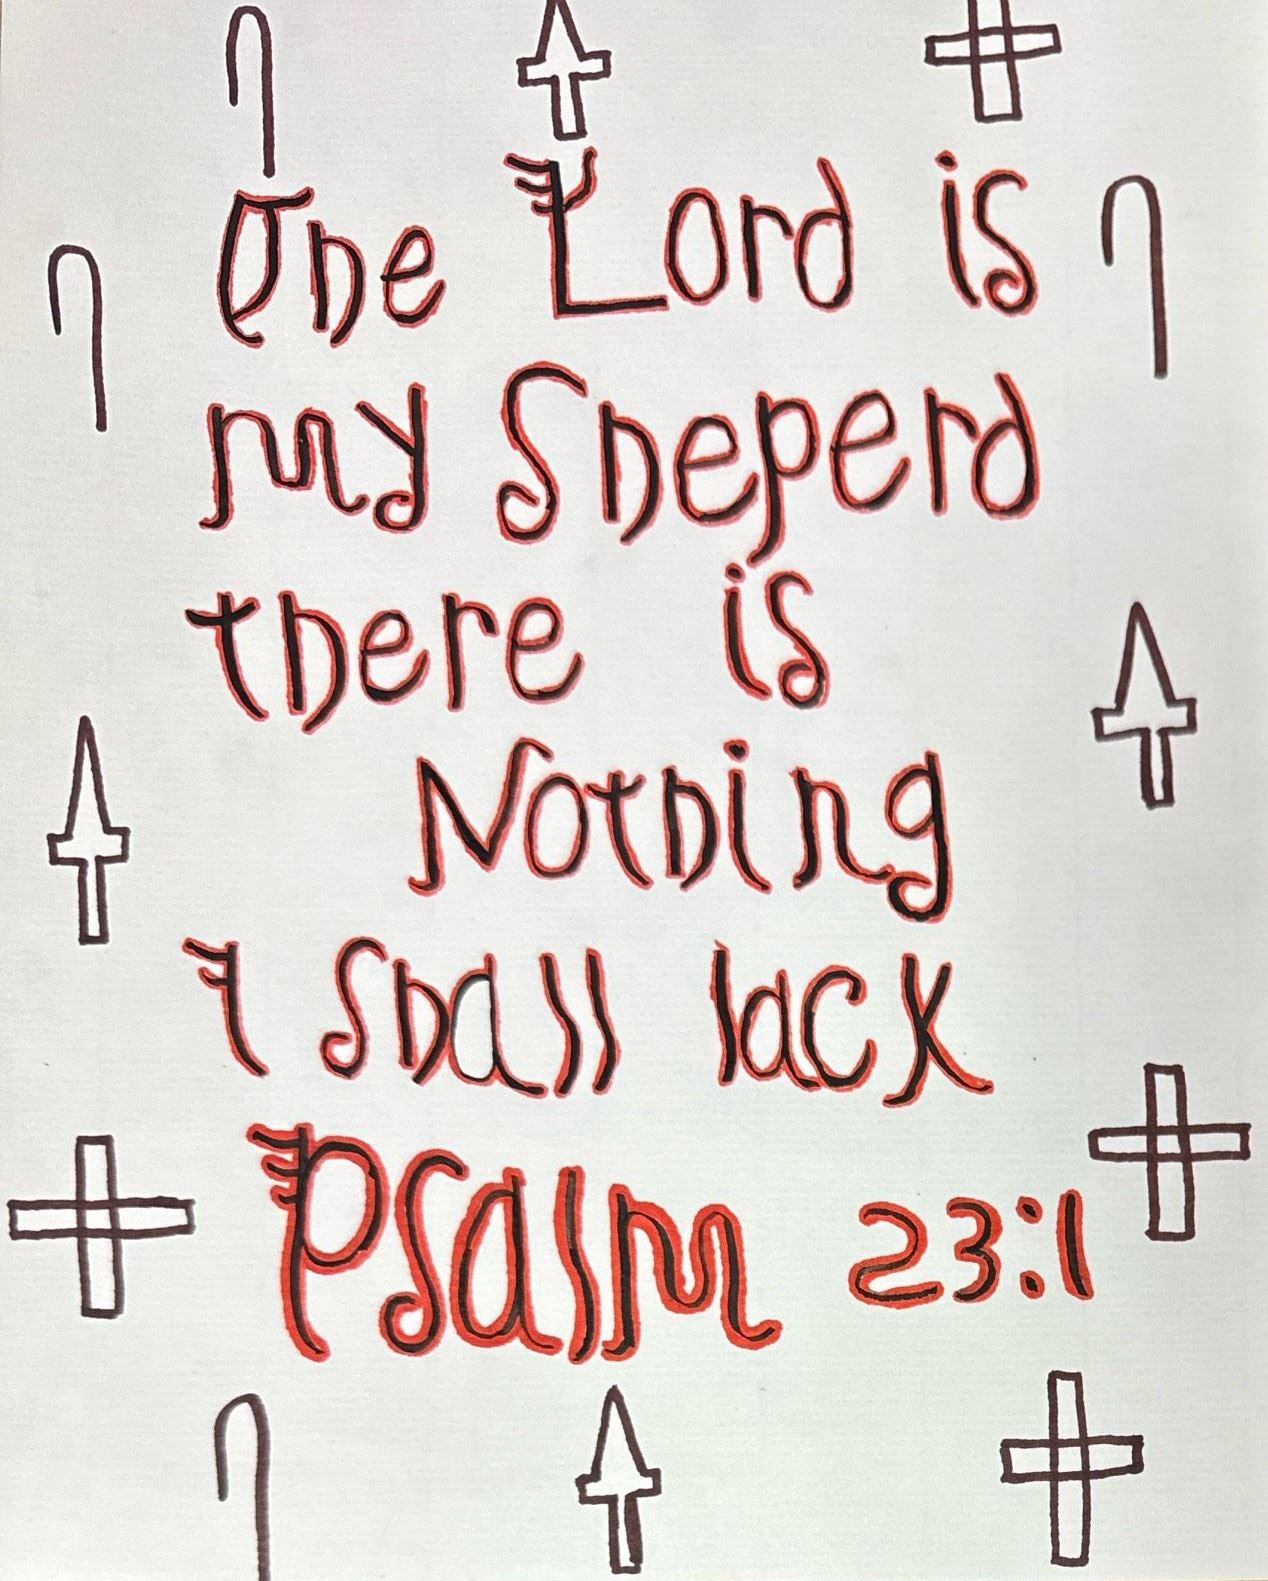 The Lord is
my Sheperd
there is
Nothing
I shall lack
Psalm 23:1